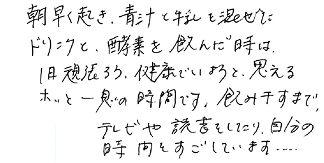 朝早く起き、青汁と牛乳を混ぜた
ドリンクと、酵素を飲んだ時は、
1日頑張ろう、健康でいようと、思える
ホッと一息の時間です。飲み干すまで、
テレビや読書をしたり、自分の
時間をすごしています....